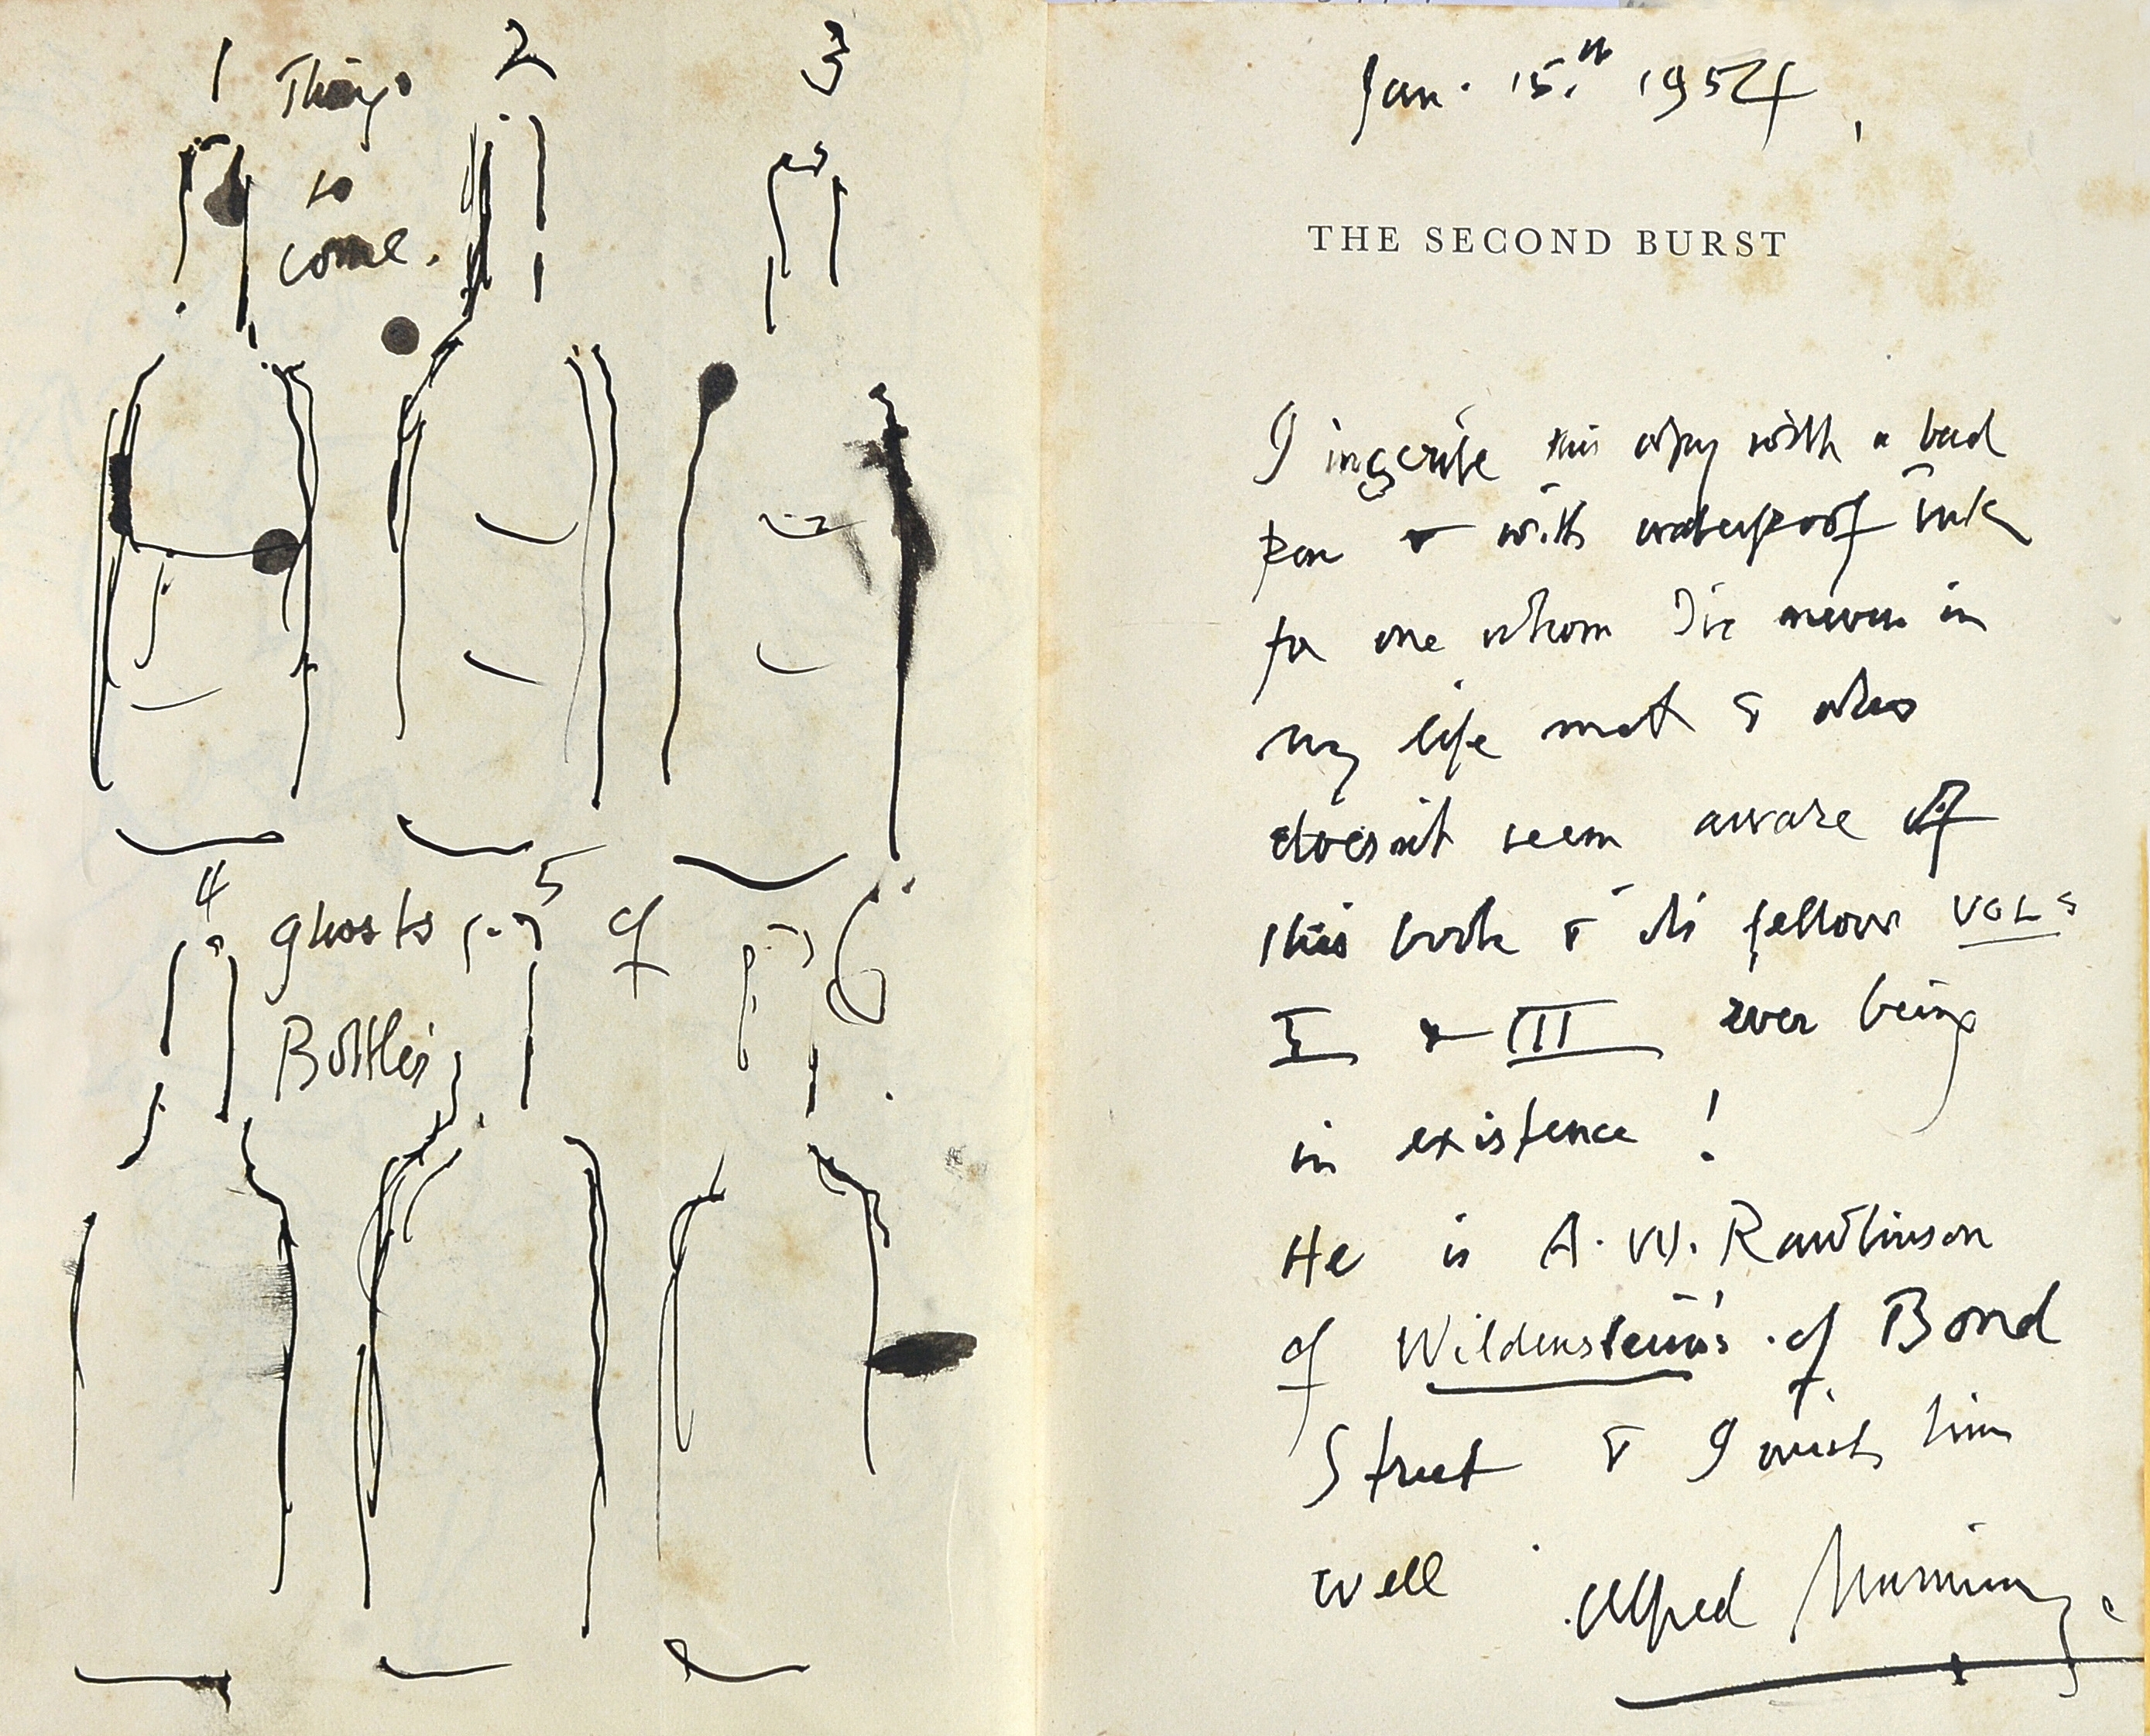 1 Things 2 3
to
come.
4 ghosts 5 of 6
Bottles
Jan. 15th 1954,
THE SECOND BURST
I inscribe this copy with a bad
pen & with waterproof ink
for one whom I've never in
my life met & who
doesn't seem aware of
this book & its fellow VOLS
I & III ever being
in existence!
He is A. W. Rawlinson
of Wildenstein's of Bond
Street & I wish him
well Alfred Munnings